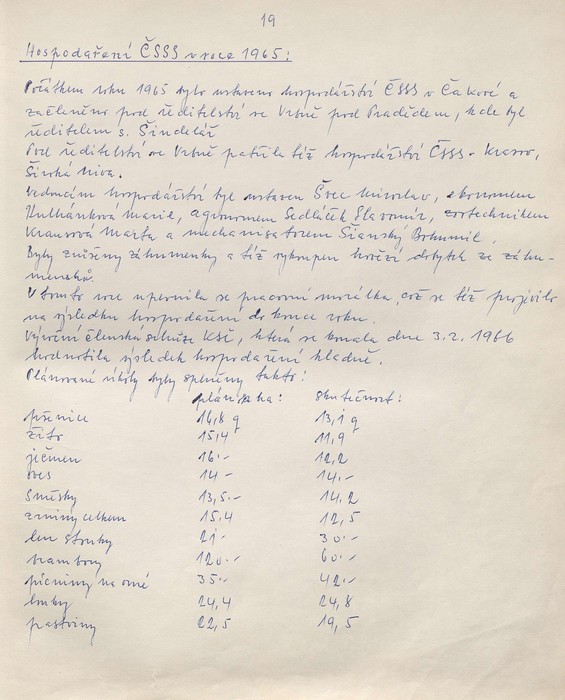 19
Hospodaření ČSSS v roce 1965:
Počátkem roku 1965 bylo ustaveno hospodářství ČSSS v Čakové a
začleněno pod ředitelství ve Vrbně pod Pradědem, kde byl
ředitelem s. Šindelář
Pod ředitelství ve Vrbně patřila též hospodářství ČSSS - Krasov,
Široká Niva.
Vedoucím hospodářství byl ustaven Švec Miroslav, ekonomem
Kulhánková Marie, agronomem Sedláček Slavomír, zootechnikem
Krausová Marta a mechanisátorem Sianský Bohumil.
Byly zrušeny záhumenky a též vykoupen hovězí dobytek ze záhu-
menků.
V tomto roce upevnila se pracovní morálka, což se též projevilo
na výsledku hospodaření do konce roku.
Výroční členská schůze KSČ, která se konala dne 3.2. 1966
hodnotila výsledek hospodaření kladně.
Plánované úkoly byly splněny takto:
plán na ha: skutečnost:
pšenice 16,8 q 13,1 q
žito 15,4 11,9
ječmen 16.- 12,2
oves 14.- 14.-
Směsky 13,5.- 14,2
zrniny celkem 15,4 12,5
len stonky 21.- 30.-
brambory 120.- 60.-
pícniny na orné 35.- 42.-
louky 24,4 24,8
pastviny 22,5 19,5